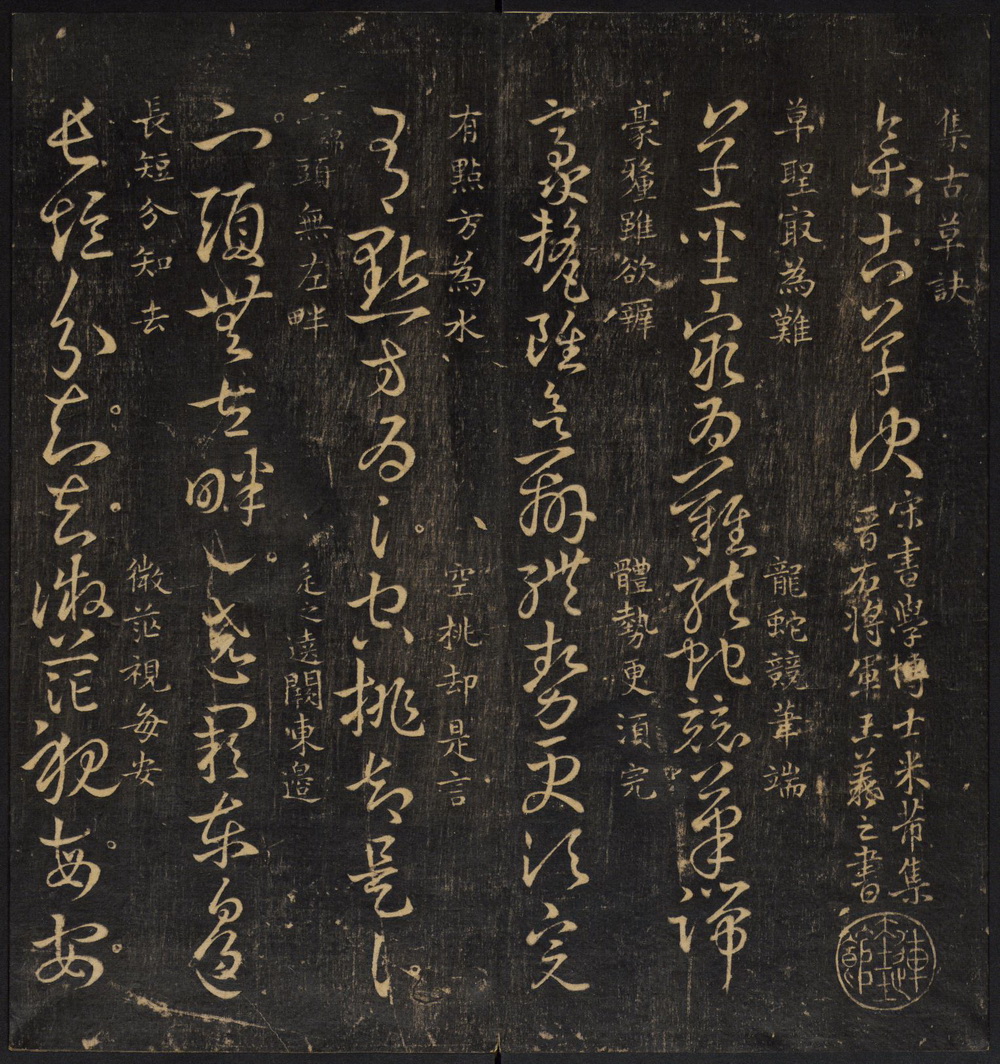 集古草訣
集古草訣
宋書學博士米芾集
晉右將軍王羲之書
草聖㝡為難 龍蛇競筆端
草聖㝡為難龍蛇競筆端
豪釐雖欲辨 體勢更須完
豪釐雖欲辨體勢更須完
有點方為水 空挑却是言
有點方為氵空挑却是讠
宀綿頭無左畔 辵之遶闕東邊
宀頭無左畔辶遶闕東邊
長短分知去 微茫視每安
長短分知去微茫視每安